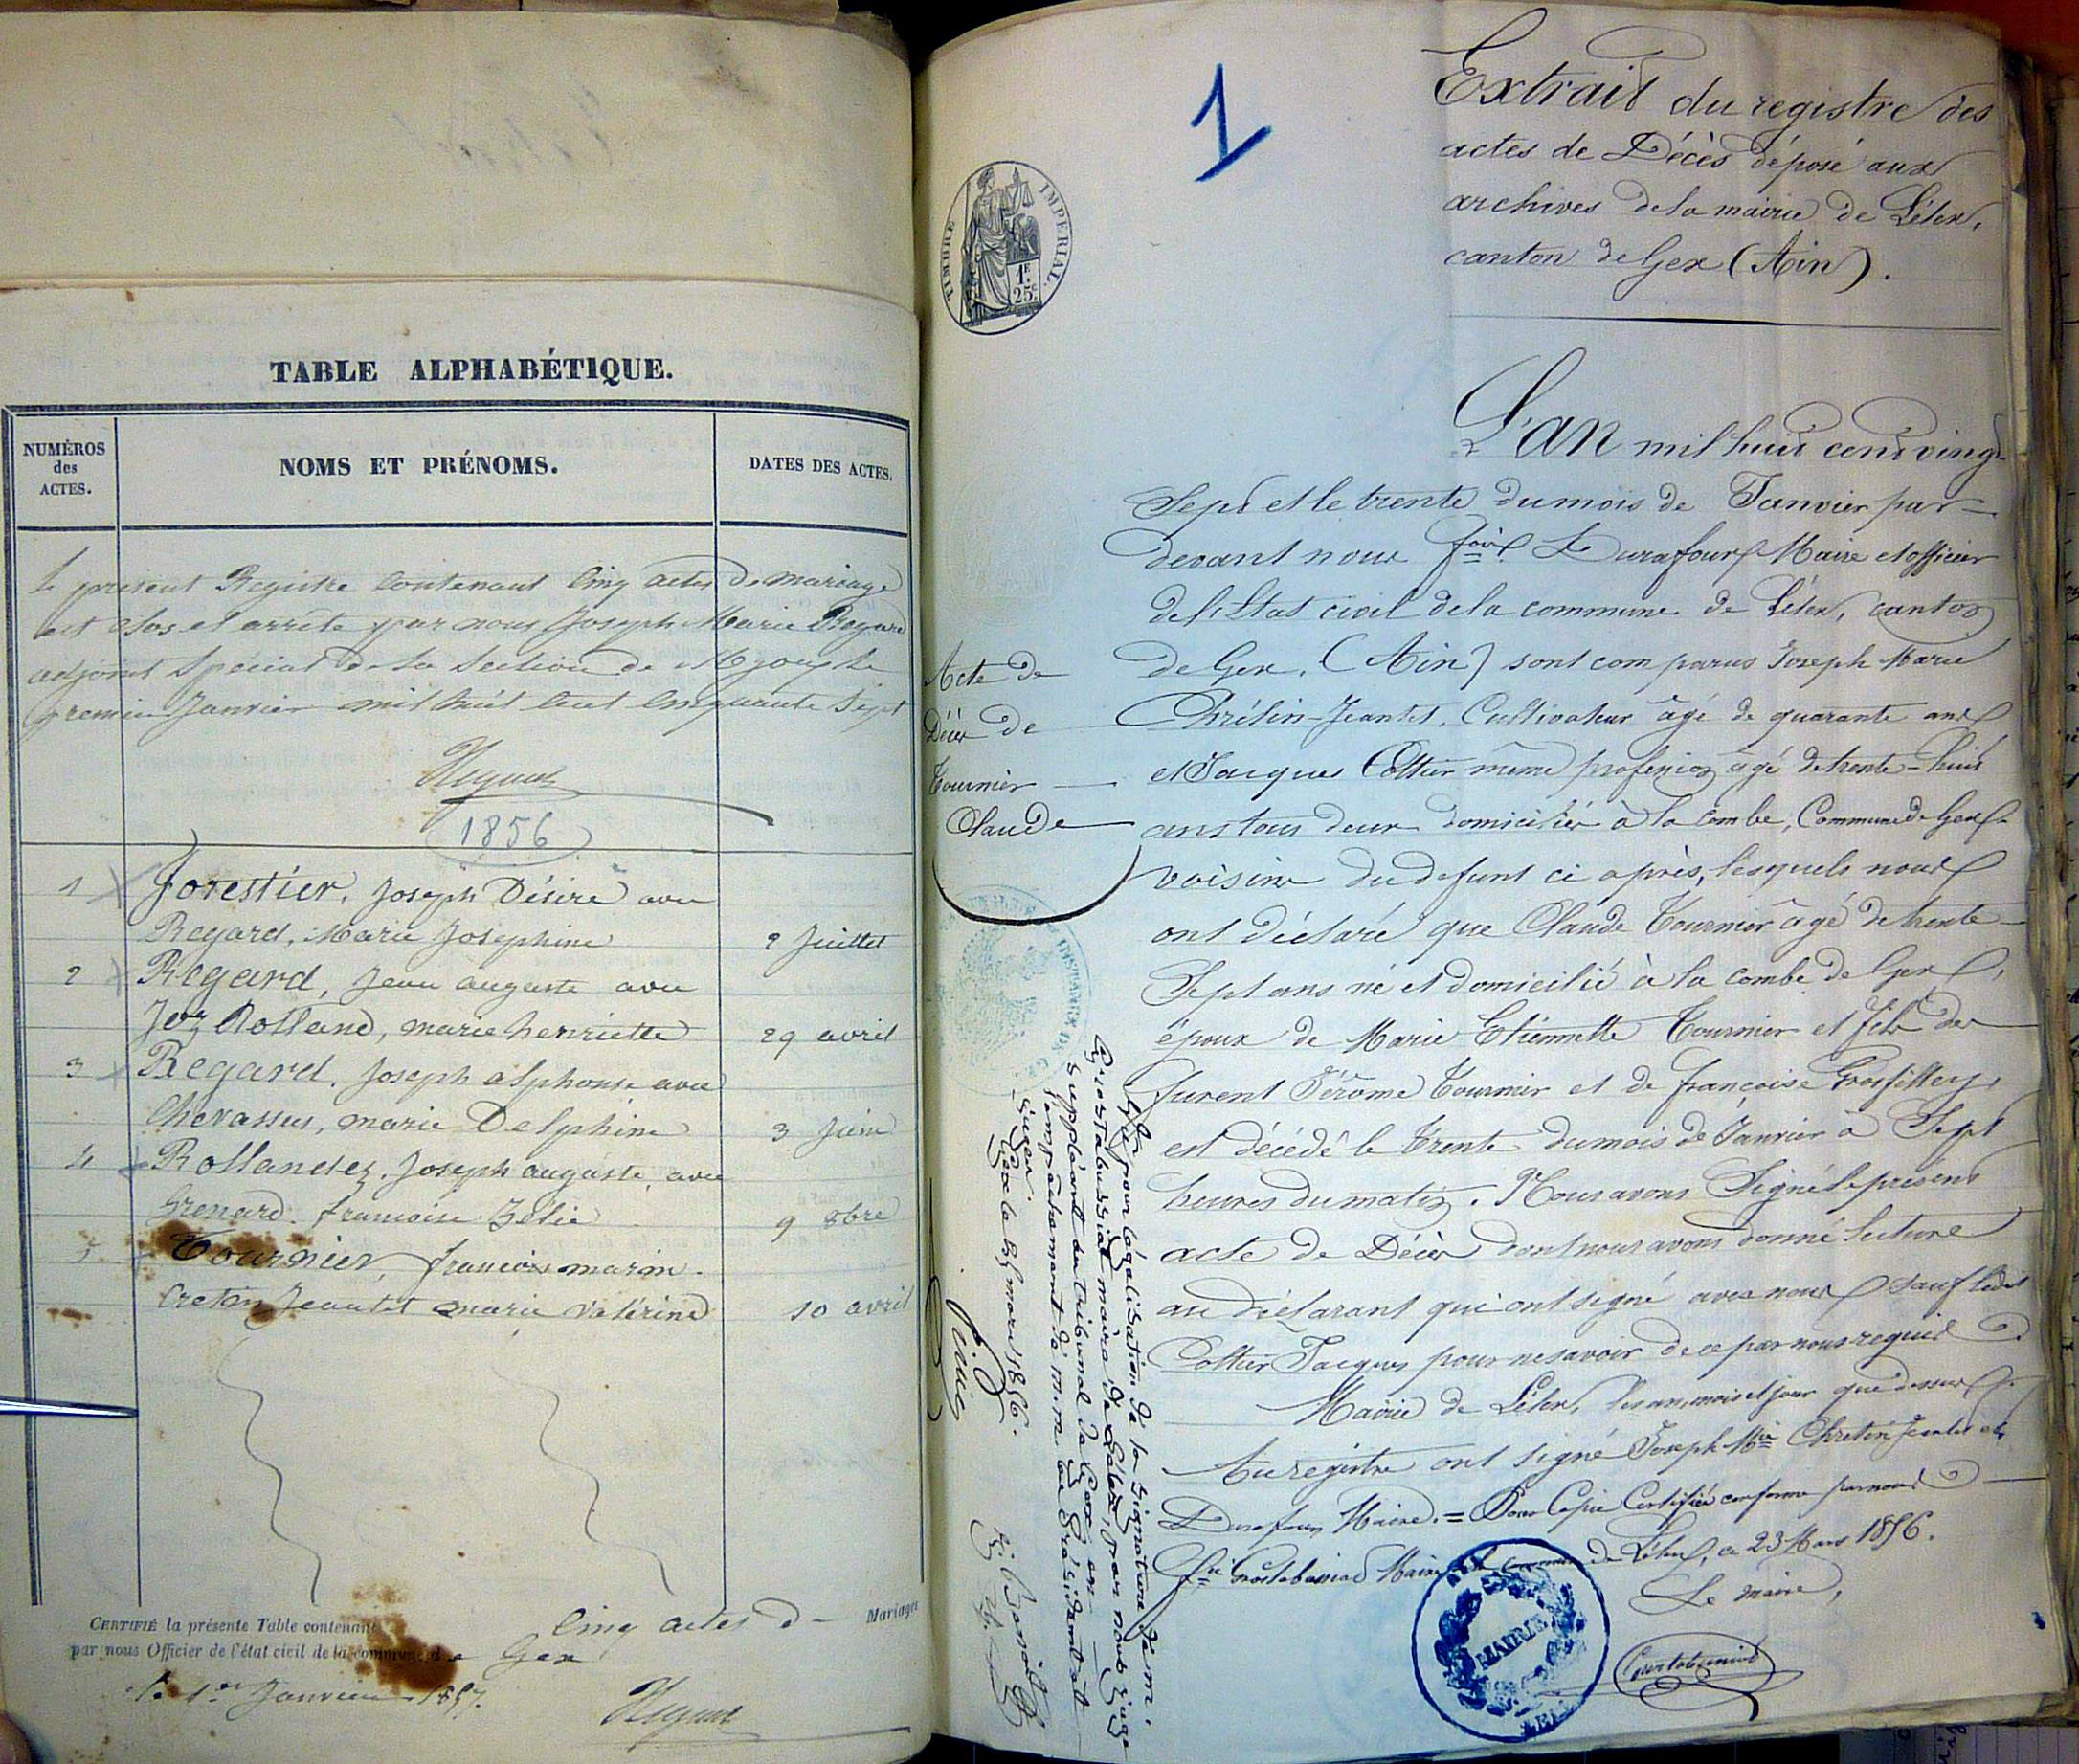 TABLE ALPHABÉTIQUE.
NUMÉROS
des
ACTES.
NOMS ET PRÉNOMS.
DATES DES ACTES.
Le présent Registre Contenant Cinq actes de mariage
est clos et arrêté par nous Joseph Marie Regard
adjoint Spécial de la Section de Mijoux le
premier Janvier mil huit Cent Cinquante Sept
Regard
1856
1 Forestier, Joseph Désiré avec
Regard, Marie Josephine 2 Juillet
2 Regard, Jean auguste avec
Joz Rolland, marie henriette 29 avril
3 Regard, Joseph alphonse avec
Chevassus, marie Delphine 3 Juin
4 Rollandez, Joseph auguste, avec
Grenard, francoise Zélie 9 8bre
5 Tournier, francois marin.
Cretin Jeantet marie valérine 10 avril
CERTIFIÉ la présente Table contenant Cinq actes d Mariages
par nous Officier de l'état civil de la commune de Gex
le 1er Janvier 1857.
Regard
1
TIMBRE IMPÉRIAL
1F
25c
Extrait du registre des
actes de Décès déposé aux
archives de la mairie de Lélex,
canton de Gex (Ain).
L'an mil huit cent vingt
Sept et le trente du mois de Janvier par=
devant nous fois Durafour Maire et officier
de l'Etat civil de la commune de Lélex, canton
de Gex, (Ain) sont comparus Joseph Marie
Chrétin-Jeantet, Cultivateur âgé de quarante ans
et Jacques Coltier même profession âgé de trente-huit
ans tous deux domiciliés à la Combe, Commune de Gex
voisins du défunt ci après, lesquels nous
ont déclaré que Claude Tournier âgé de trente
Sept ans né et domicilié à la combe de Gex,
époux de Marie Etiennette Tournier et fils de
furent Jérôme Tournier et de françoise Grosfilley,
est décédé le trente du mois de Janvier à Sept
heures du matin. Nous avons Signé le présent
acte de Décès dont nous avons donné lecture
au déclarant qui ont signé avec nous sauf ledit
Coltier Jacques pour ne savoir de ce par nous requis
Mairie de Lélex, les an, mois et jour que dessus
Au registre ont signé Joseph Mie Chretin Jeantet et
Durafour Maire. = Pour Copie Certifiée conforme par nous
Maire de la Commune de Lélex, ce 23 Mars 1856.
Le maire,
Grostabussiat
MAIRIE
Acte de
Décès de
Tournier
Claude
Vu pour légalisation de la signature de m.
Grostabussiat maire de Lélex, par nous juge
suppléant au tribunal de Gex, en
l'empêchement de m.m. les Président et
juges.
Gex le mars 1856.